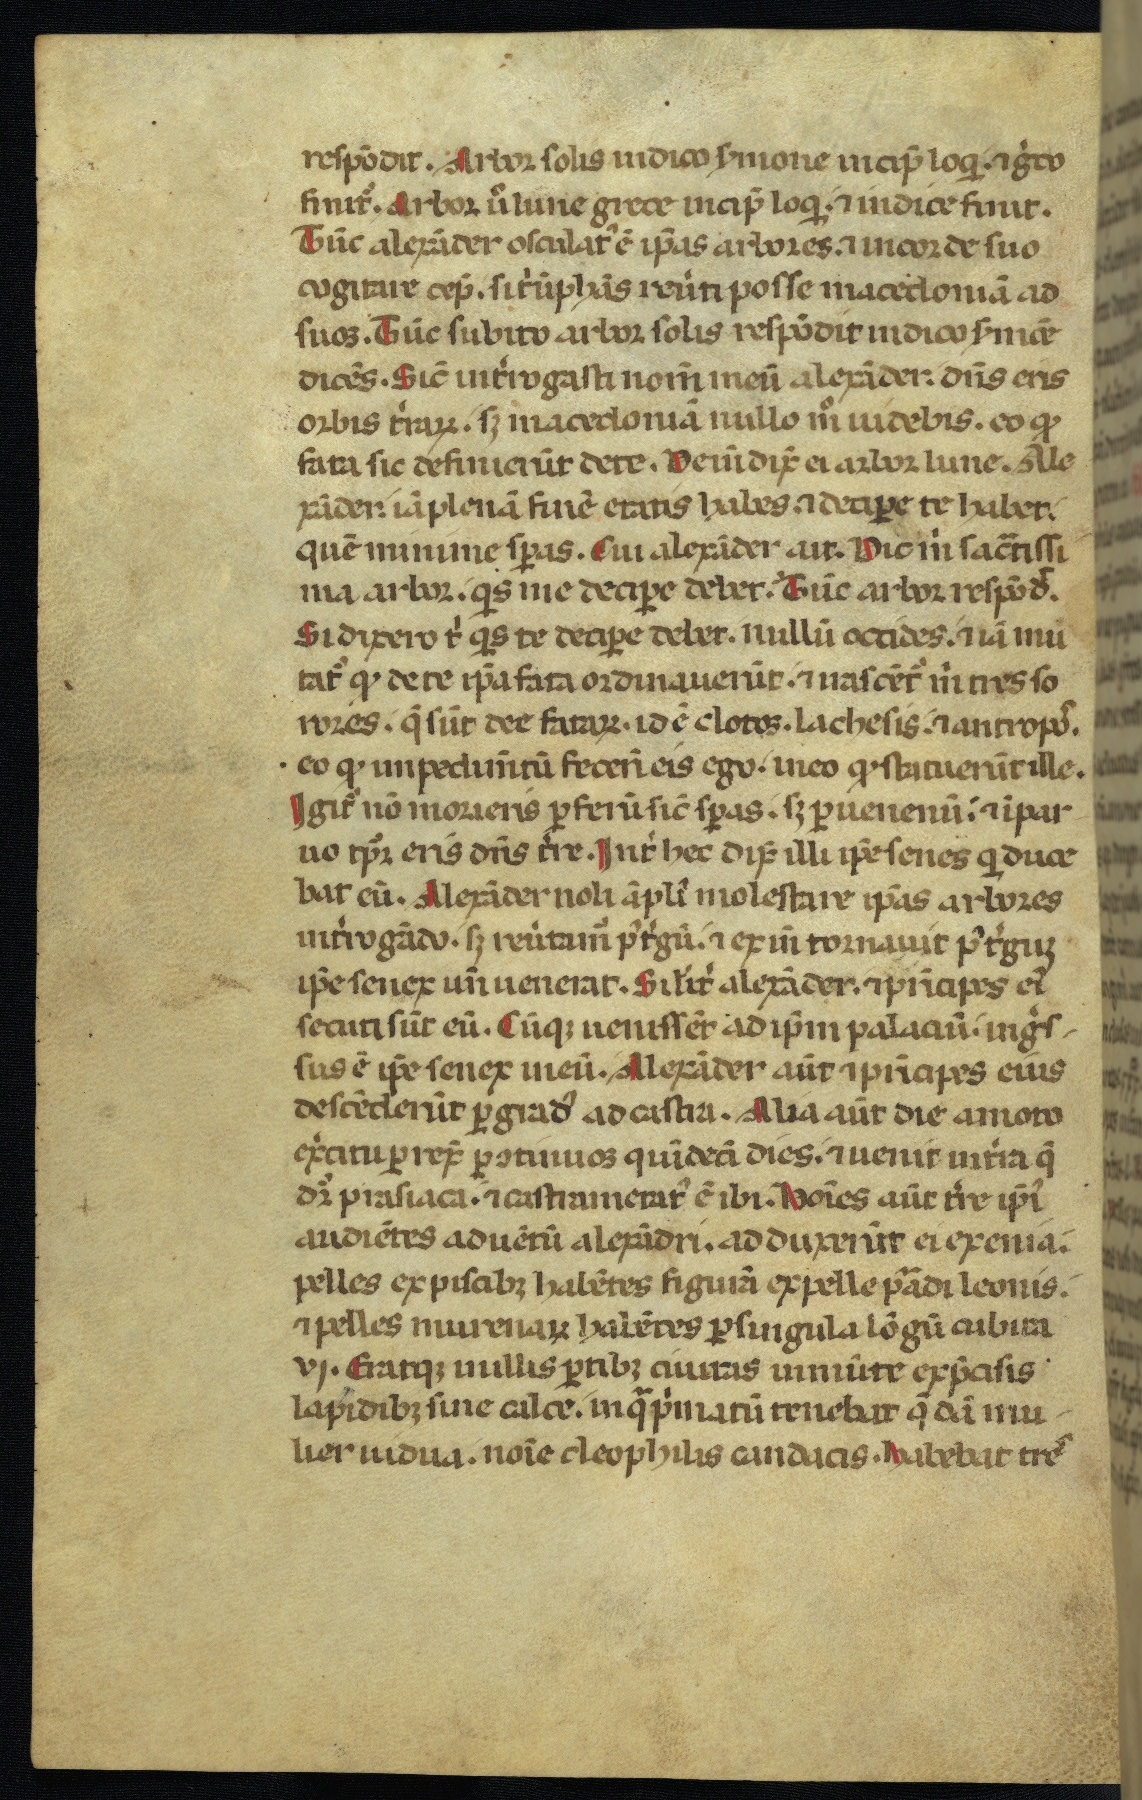 respōdit. Arbor solis indico s̄mone incip̄ loqi. ⁊ g̃co
finit᷑. Arbor ũo lune grece incip̄ loqi. ⁊ indice finit.
Tūc alexāder osculat᷑ ē ip̄as arbores. ⁊ in corde suo
cogitare cep̄. si t̃ūphās reũti posse macedoniā ad
suos. Tūc subito arbor solis respōdit indico s̄mōe
dicēs. Sic̄ int̃rogasti nom̄ meū alexāder. dn̄s eris
orbis t̃raꝝ. sꝫ macedoniā nullo mº uidebis. eo ꝙ
fata sic definierūt de te. Dein̄ dix̄ ei arbor lune. Ale
xāder. iā plenā finē etatis habes. ⁊ decipe te habet.
quē minime sp̄as. Cui alexāder ait. Dic m̃ sāctissi
ma arbor. qis me decipe debet. Tūc arbor respōd̄.
Si dixero t̃ qis te decipe debet. nullū occides. ⁊ iā mu
tat᷑ ꝙ de te ip̄a fata ordinauerūt. ⁊ nascēt᷑ m̃ tres so
rores. q̄ sūt dee fataꝝ. id ē clotos. lachesis. ⁊ antropos̄.
eo ꝙ impedim̄tū fecerī eis ego. in eo ꝙ statuerūt ille.
Igit᷑ nō morieris ꝑ ferū sic̄ sp̄as. sꝫ ꝑ uenenū. ⁊ ī par
uo tp̄r eris dn̄s t̃re. Int̃ hec dix̄ illi ip̄e senex qi duce
bat eū. Alexāder noli āpli᷒ molestare ip̄as arbores
int̃rogādo. sꝫ reũtam᷒ p᷒t̃gū. ⁊ exin̄ tornauit p᷒t̃guꝫ
ip̄e senex un̄ uenerat. Sil̄it̃ alexāder. ⁊ pͥncipes ei᷒
secuti sūt eū. Cūqꝫ uenissēt ad ip̄m palaciū. ing̃s-
sus ē ip̄e senex in eū. Alexāder aūt ⁊ pͥncipes eius
descēderūt ꝑ grad᷒ ad castra. Alia aūt die amoto
ex̃citu ꝑrex̄ ꝑ ꝯtinuos quīdecī dies. ⁊ uenit int̃ra q̄
dr̄ prasiaca. ⁊ castrametat᷒ ē ibi. hoīes aūt t̃re ip̄i᷒
audiētes aduētū alexādri. adduxerūt ei exenia.
pelles ex piscibꝫ habētes figurā ex pelle p̄adi leonis.
⁊ pelles murenaꝝ habētes ꝑ singula lōgū cubita
vj. Eratqꝫ in illis ꝑtibꝫ ciuitas inmūte ex p̄cisis
lapidibꝫ sine calce. in qᵃ pͥncipatū tenebat q̄dā mu-
lier uidua. noīe cleophilis candacis. habebat tre᷒